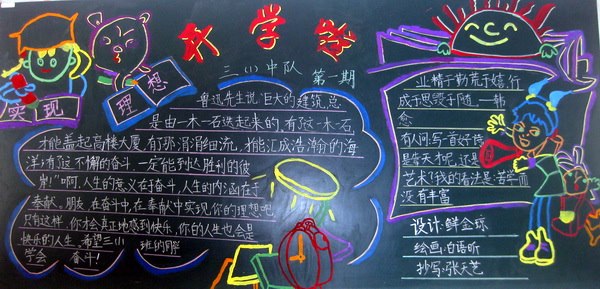 开学啦
三(1)中队 第一期
实现
理想
鲁迅先生说:巨大的建筑,总
是由一木一石迭起来的,有弦一木一石
才能盖起高楼大厦,有那涓涓细流,才能汇成浩渺的海
洋,有弦不懈的奋斗,一定能到达胜利的彼
岸!"啊,人生的意义在于奋斗,人生的内涵在于
奉献,朋友,在奋斗中,在奉献中实现你的理想吧,
只有这样,你才会真正地感到快乐,你的人生也会是
快乐的人生,希望三(1)班的同
学会 奋斗!
业精于勤荒于嬉,行
成于思毁于随。一韩
愈
有人问:写一首好诗
是靠天才吧,还是
艺术?我的看法是:苦学而
没有丰富
设计:鲜金珠
绘画:白语昕
抄写:张天艺